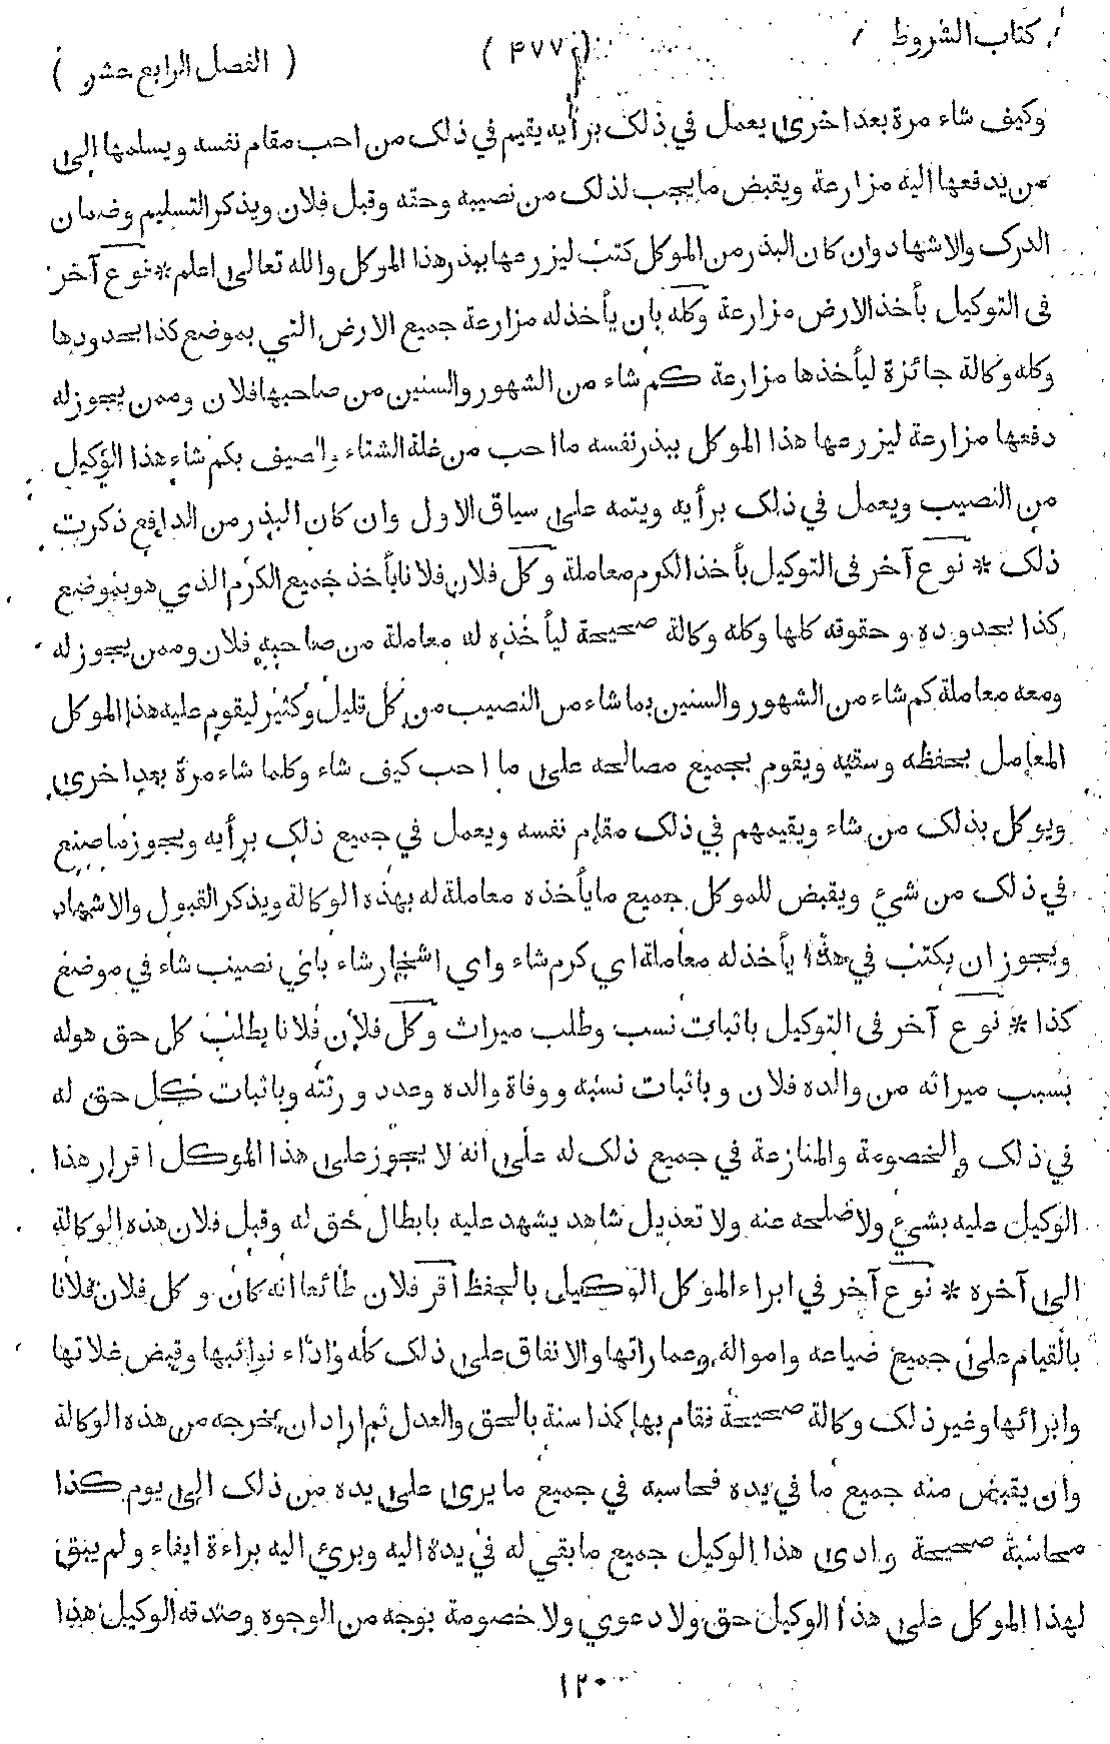 كتاب الشروط ( ۴۷۷ ) ( الفصل الرابع عشر )
وكيف شاء مرة بعد اخرى يعمل في ذلك برأيه يقيم في ذلك من احب مقام نفسه ويسلمها الى
من يدفعها اليه مزارعة ويقبض ما يجب لذلك من نصيبه وحقه وقبل فلان ويذكر التسليم وضمان
الدرك والاشهاد وان كان البذر من الموكل كتب ليزرعها ببذر هذا الموكل والله تعالى اعلم * نوع آخر
فى التوكيل بأخذ الارض مزارعة وكله بان يأخذ له مزارعة جميع الارض التي بموضع كذا بحدودها
وكله وكالة جائزة ليأخذها مزارعة كم شاء من الشهور والسنين من صاحبها فلان وممن يجوز له
دفعها مزارعة ليزرعها هذا الموكل ببذر نفسه ما احب من غلة الشتاء والصيف بكم شاء هذا الوكيل
من النصيب ويعمل في ذلك برأيه ويتمه على سياق الاول وان كان البذر من الدافع ذكرت
ذلك * نوع آخر فى التوكيل بأخذ الكرم معاملة وكل فلان فلانا بأخذ جميع الكرم الذي هو بموضع
كذا بحدوده و حقوقه كلها وكله وكالة صحيحة ليأخذه له معاملة من صاحبه فلان وممن يجوز له
ومعه معاملة كم شاء من الشهور والسنين بما شاء من النصيب من كل قليل وكثير ليقوم عليه هذا الموكل
المعامل بحفظه وسقيه ويقوم بجميع مصالحه على ما احب كيف شاء وكلما شاء مرة بعد اخرى
ويوكل بذلك من شاء ويقيمهم في ذلك مقام نفسه ويعمل في جميع ذلك برأيه ويجوز ما صنع
في ذلك من شيء ويقبض للموكل جميع ما يأخذه معاملة له بهذه الوكالة ويذكر القبول والاشهاد
ويجوز ان يكتب في هذا يأخذ له معاملة اي كرم شاء واي اشجار شاء باي نصيب شاء في موضع
كذا * نوع آخر فى التوكيل باثبات نسب وطلب ميراث وكل فلان فلانا بطلب كل حق هو له
بسبب ميراثه من والده فلان وباثبات نسبه ووفاة والده وعدد ورثته وباثبات كل حق له
في ذلك والخصومة والمنازعة في جميع ذلك له على انه لا يجوز على هذا الموكل اقرار هذا
الوكيل عليه بشيء ولا صلحه عنه ولا تعديل شاهد يشهد عليه بابطال حق له وقبل فلان هذه الوكالة
الى آخره * نوع آخر في ابراء الموكل الوكيل بالحفظ اقر فلان طائعا انه كان وكل فلان فلانا
بالقيام على جميع ضياعه وامواله وعماراتها والانفاق على ذلك كله واداء نوائبها وقبض غلاتها
وانزائها وغير ذلك وكالة صحيحة فقام بها كذا سنة بالحق والعدل ثم اراد ان يخرجه من هذه الوكالة
وان يقبض منه جميع ما في يده فحاسبه في جميع ما يرى على يده من ذلك الى يوم كذا
محاسبة صحيحة وادى هذا الوكيل جميع ما بقي له في يده اليه وبرئ اليه براءة ايفاء ولم يبق
لهذا الموكل على هذا الوكيل حق ولا دعوي ولا خصومة بوجه من الوجوه وصدقه الوكيل هذا
۱۲۰